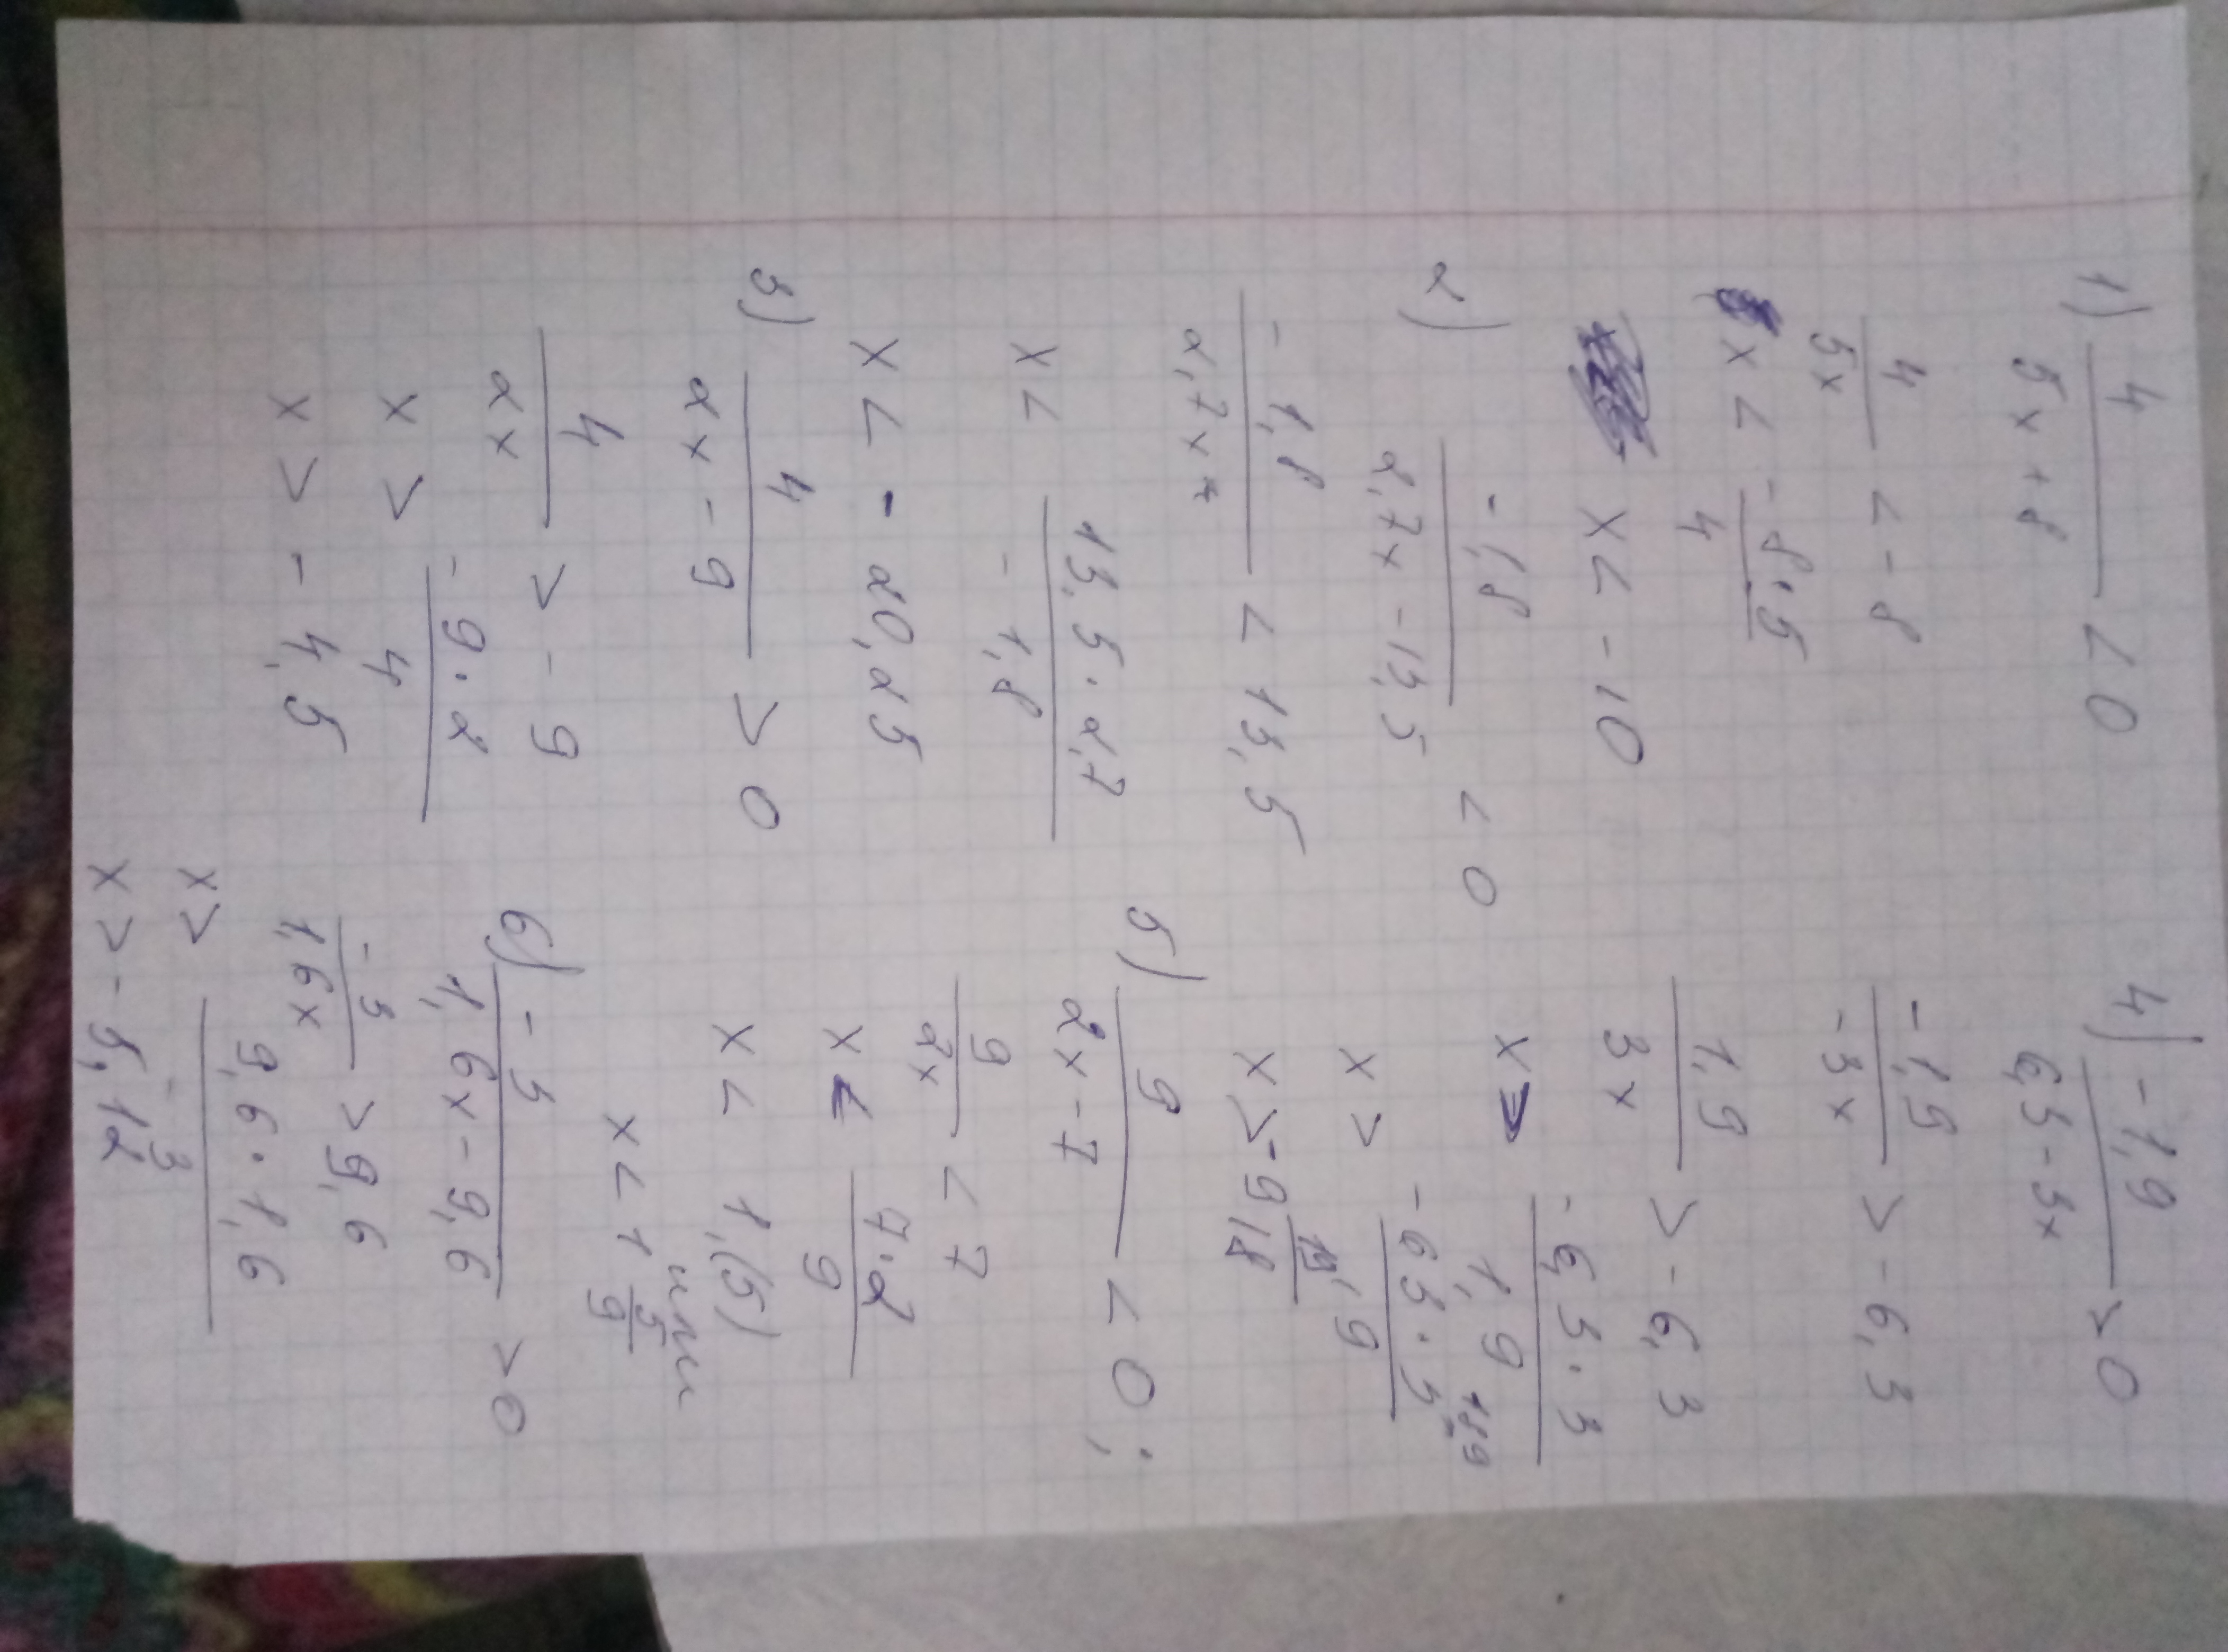 1) 4/(5x+8) < 0
4/(5x) < -8
x < -8·5/4
x < -10
2) -1,8/(2,7x-13,5) < 0
-1,8/(2,7x) < 13,5
x < 13,5·2,7/-1,8
x < -20,25
3) 4/(2x-9) > 0
4/(2x) > -9
x > -9·2/4
x > -4,5
4) -1,9/(6,3-3x) > 0
-1,9/(-3x) > -6,3
1,9/(3x) > -6,3
-6,3·3/1,9
x > -63·3/19
x > -9 18/19
5) 9/(2x-7) < 0;
9/(2x) < 7
x < 7·2/9
x < 1,(5) или
x < 1 5/9
6) -3/(1,6x-9,6) > 0
-3/(1,6x) > 9,6
x > 9,6·1,6/-3
x > -5,12